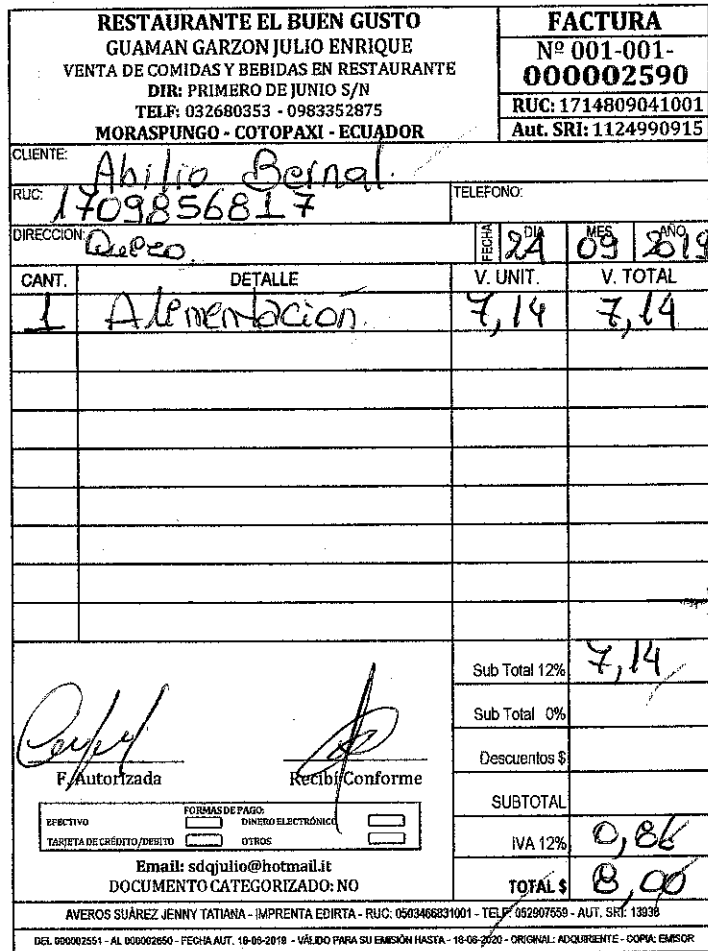 RESTAURANTE EL BUEN GUSTO
GUAMAN GARZON JULIO ENRIQUE
VENTA DE COMIDAS Y BEBIDAS EN RESTAURANTE
DIR: PRIMERO DE JUNIO S/N
TELF: 032680353 - 0983352875
MORASPUNGO - COTOPAXI - ECUADOR
FACTURA
Nº 001-001-
000002590
RUC: 1714809041001
Aut. SRI: 1124990915
CLIENTE: Abilio Bernal.
RUC: 1709856817 TELEFONO:
DIRECCION: FECHA DIA 24 MES 09 AÑO 2019
CANT. DETALLE V. UNIT. V. TOTAL
1 Alimentación. 7,14 7,14
Sub Total 12% 7,14
Sub Total 0%
Descuentos $
SUBTOTAL
IVA 12% 0,86
TOTAL $ 8,00
F. Autorizada Recibí Conforme
FORMAS DE PAGO:
EFECTIVO DINERO ELECTRÓNICO
TARJETA DE CRÉDITO/DEBITO OTROS
Email: sdqjulio@hotmail.it
DOCUMENTO CATEGORIZADO: NO
AVEROS SUÁREZ JENNY TATIANA - IMPRENTA EDIRTA - RUC: 0503466831001 - TELF: 052907559 - AUT. SRI: 13938
DEL 000002551 - AL 000002650 - FECHA AUT. 18-06-2019 - VÁLIDO PARA SU EMISIÓN HASTA - 18-06-2020 - ORIGINAL: ADQUIRIENTE - COPIA: EMISOR